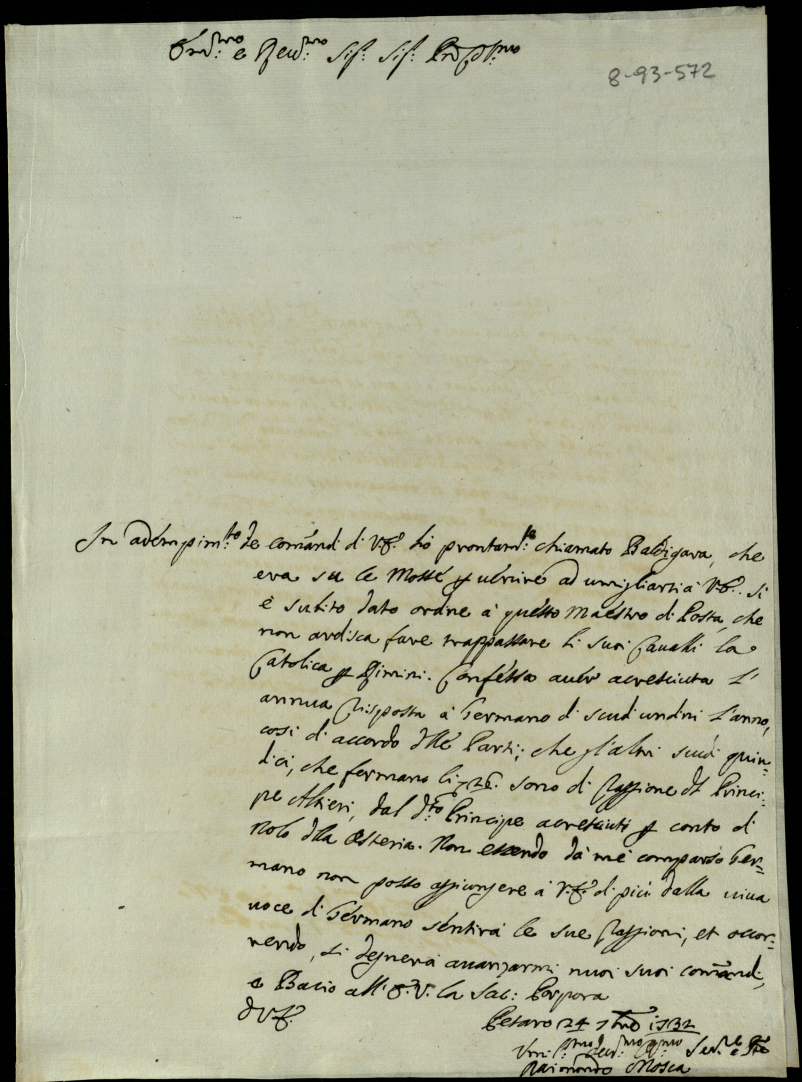 e Rev.mo Sig.r Sig.r
8-93-572
In adempim.to de comandi di V.E. hò prontam.te chiamato Baldigara, che
era su le Mosse p venire ad umigliarsi à V.E. Si
è subito dato ordine à questo Maestro di Posta, che
non ardisca fare trappassare li suoi Cavalli la
Catolica p Rimini. Confessa aver acresciuta l'
annua Risposta à Germano di scudi undici l'anno,
così di accordo delle Parti; che gl'altri scudi quin=
dici, che fermano li 26. sono di Raggione del Princi=
pe Altieri, dal d.to Principe acresciuti p conto di
Nolo della Osteria. Non essendo da me comparso Ger=
mano non posso aggiongere à V.E. di più dalla viva
voce di Germano sentirà le sue Raggioni, et occor=
rendo, si degnerà avanzarmi nuovi suoi comandi,
e Bacio all'E.V. la Sac: Porpora
D V.E.
Pesaro 24 7bre 1732
Um.mo Dev.mo Serv.e
Raimondo Mosca